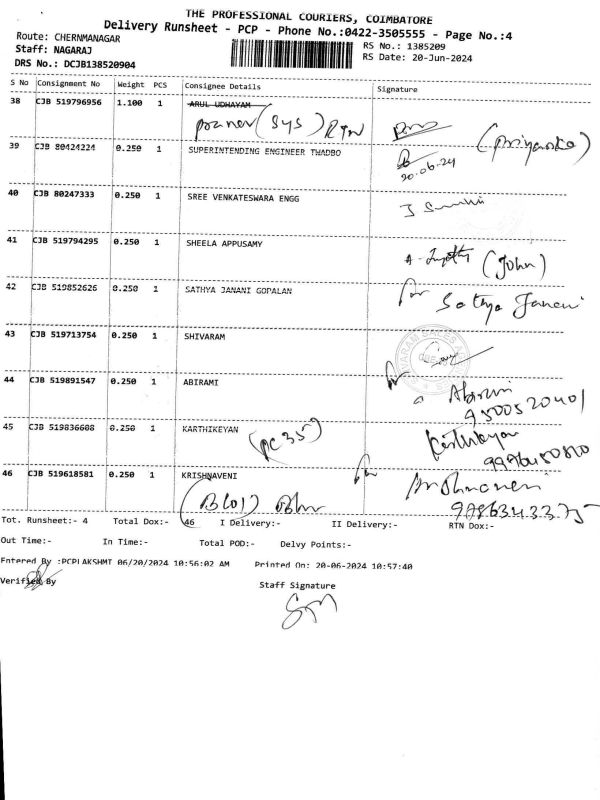 THE PROFESSIONAL COURIERS, COIMBATORE
Delivery Runsheet - PCP - Phone No.:0422-3505555 - Page No.:4
Route: CHERNMANAGAR RS No.: 1385209
Staff: NAGARAJ RS Date: 20-Jun-2024
DRS No.: DCJB138520904
S No Consignment No Weight PCS Consignee Details Signature
38 CJB 519796956 1.100 1 ARUL UDHAYAM
pranav (sys) RTN (priyanka)
39 CJB 80424224 0.250 1 SUPERINTENDING ENGINEER TWADBO
20.06.24
40 CJB 80247333 0.250 1 SREE VENKATESWARA ENGG
41 CJB 519794295 0.250 1 SHEELA APPUSAMY
(John)
42 CJB 519852626 0.250 1 SATHYA JANANI GOPALAN
Sathya Janani
43 CJB 519713754 0.250 1 SHIVARAM
44 CJB 519891547 0.250 1 ABIRAMI
Abirami
9500520401
45 CJB 519836608 0.250 1 KARTHIKEYAN (pc 35) Karthikeyan
46 CJB 519618581 0.250 1 KRISHNAVENI
Tot. Runsheet:- 4 Total Dox:- 46 I Delivery:- II Delivery:- RTN Dox:-
Out Time:- In Time:- Total POD:- Delvy Points:-
Entered By :PCPLAKSHMI 06/20/2024 10:56:02 AM Printed On: 20-06-2024 10:57:40
Verified By Staff Signature